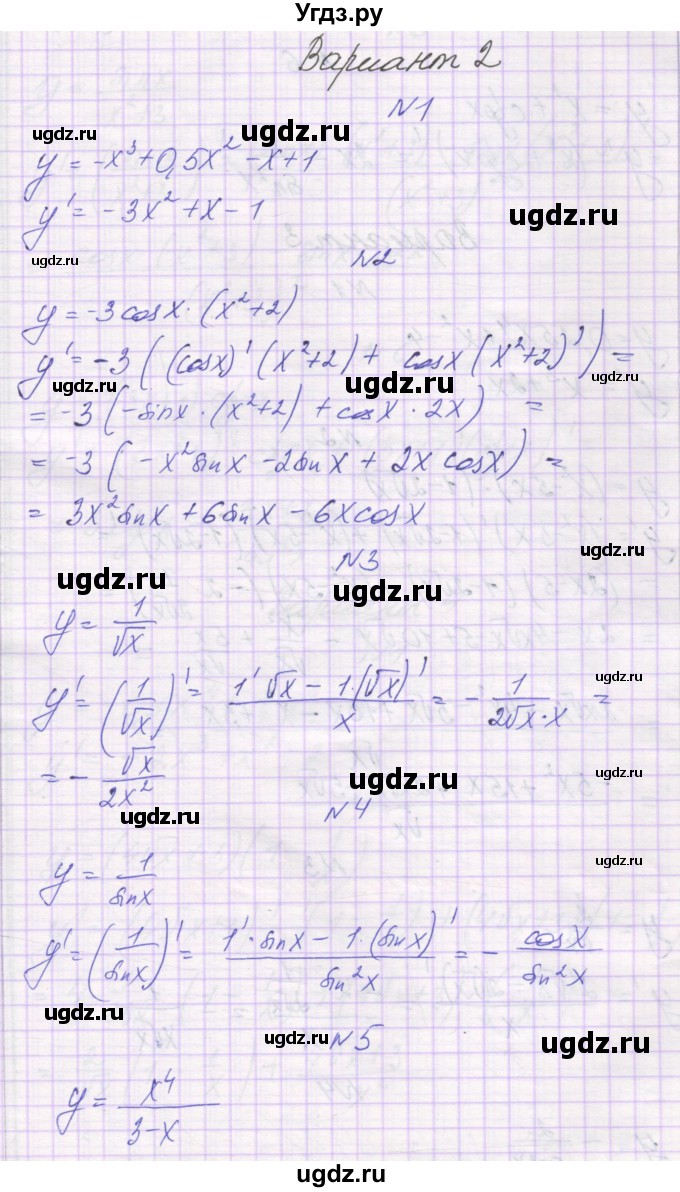 Угдз.ру
Вариант 2
N1
ugdz.ru ugdz.ru ugdz.ru
y = -x³+0,5x² -x+1
y' = -3x² +x-1
ugdz.ru
ugdz.ru
N2
y=-3cosx·(x²+2)
y' = -3((cosx)'(x²+2)+ cosx(x²+2)') =
ugdz.ru ugdz.ru
= -3(-sinx·(x²+2)+cosx·2x) =
= -3(-x²sinx -2sinx+ 2x cosx) =
= 3x²sinx+6sinx-6xcosx
ugdz.ru
N3
ugdz.ru
y = 1/√x
ugdz.ru
y' = (1/√x)' = (1'√x - 1·(√x)')/x = - 1/(2√x·x) =
= - √x/(2x²)
ugdz.ru
ugdz.ru
ugdz.ru
N4
y = 1/sinx
ugdz.ru
y' = (1/sinx)' = (1'·sinx - 1·(sinx)')/sin²x = - cosx/sin²x
ugdz.ru
ugdz.ru
ugdz.ru
N5
ugdz.ru
y = x⁴/(3-x)
ugdz.ru